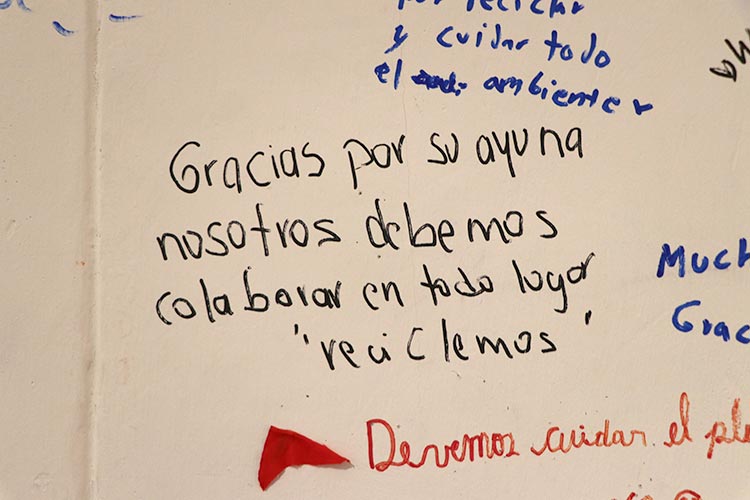 por reciclar
y cuidar todo
el ambiente
Gracias por su ayuna
nosotros debemos
colaborar en todo lugar
"reciclemos"
Much
Grac
Devemos cuidar el pla